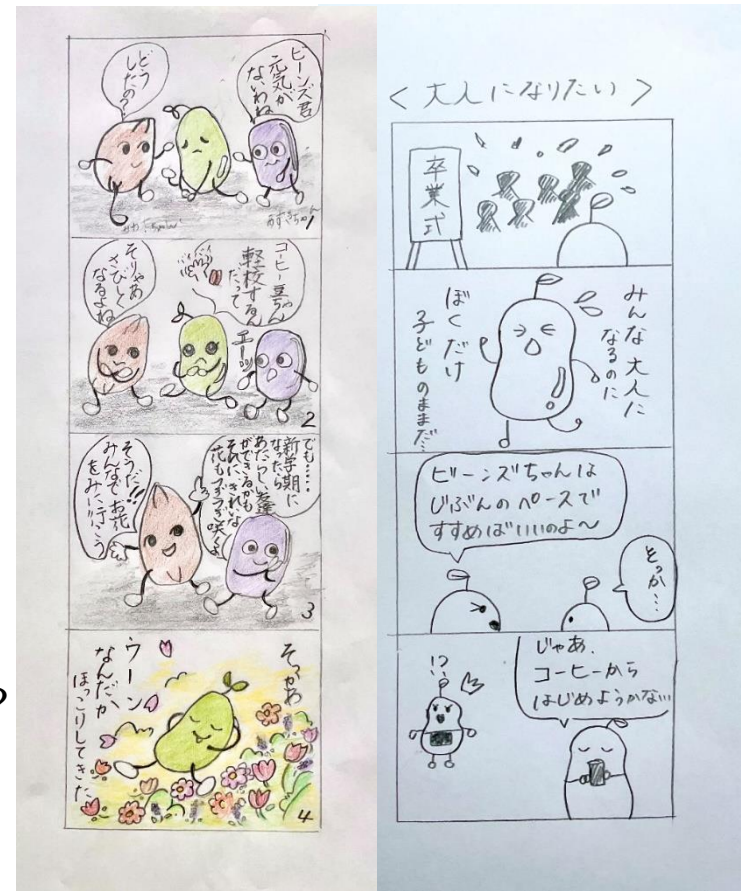 ビーンズ君
元気が
ないわね
どう
したの?
あずきちゃん
1
コーヒー豆ちゃん
軽校するん
だって
エーッ
そりゃあ
さびしく
なるよね
2
でも……
新学期に
なったら
あたらしい友達
ができるかも
それにきれいな
花も咲くよ
そうだ!!
みんなでお花
をみに行こう
3
そっかあ
ウーン
なんだか
ほっこりしてきた
4
<大人になりたい>
卒業式
みんな大人に
なるのに
ぼくだけ
子どものままだ…
ビーンズちゃんは
じぶんのペースで
すすめばいいのよ~
そっか…
じゃあ、
コーヒーから
はじめようかな…
!?